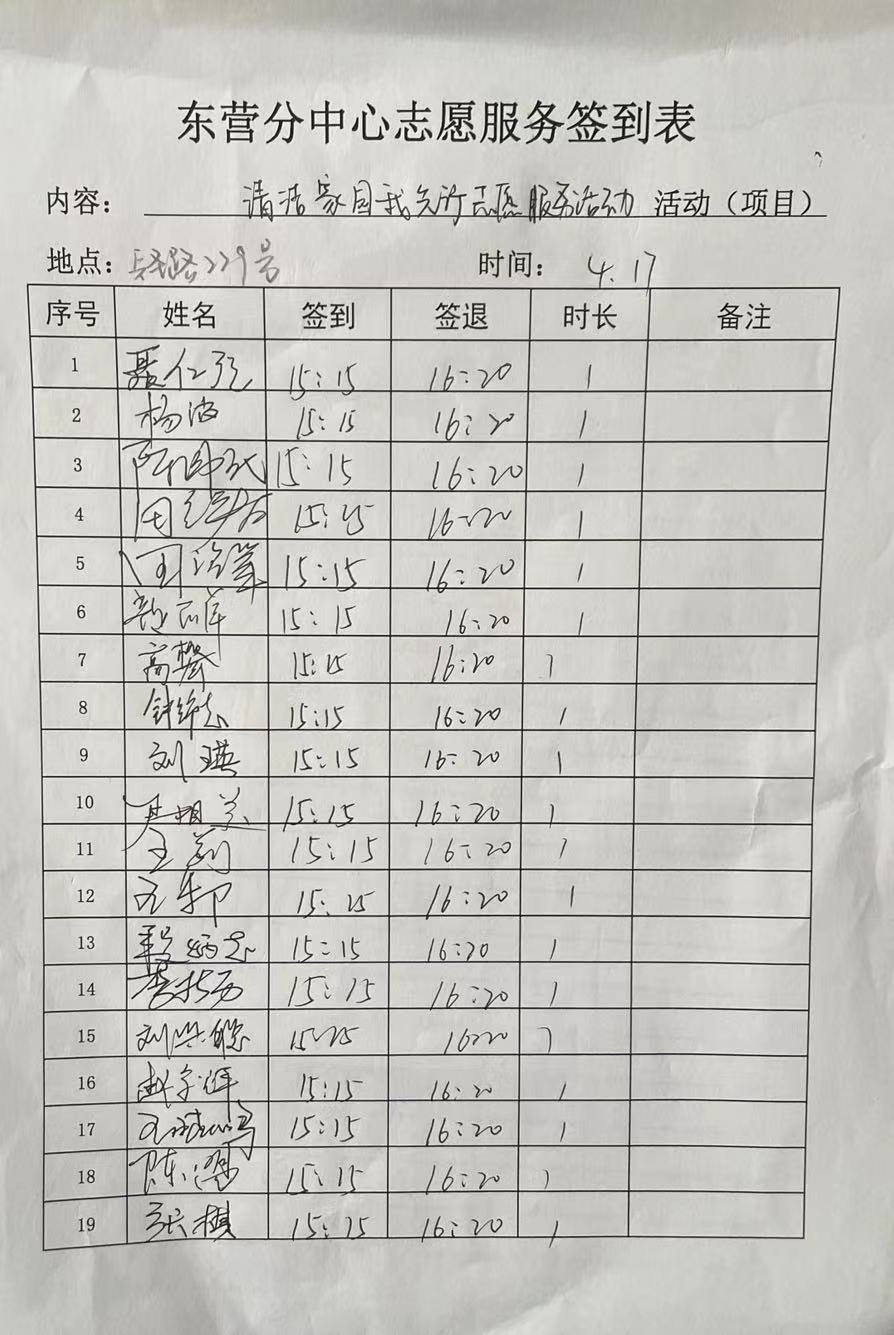 东营分中心志愿服务签到表
内容： 清洁家园我先行志愿服务活动 活动（项目）
地点： 路229号 时间： 4.17
序号 姓名 签到 签退 时长 备注
1 聂仁 15:15 16:20 1
2 杨波 15:15 16:20 1
3 15:15 16:20 1
4 15:15 16:20 1
5 15:15 16:20 1
6 15:15 16:20 1
7 高攀 15:15 16:20 1
8 15:15 16:20 1
9 刘瑛 15:15 16:20 1
10 15:15 16:20 1
11 王莉 15:15 16:20 1
12 15:15 16:20 1
13 15:15 16:20 1
14 15:15 16:20 1
15 刘洪聪 15:15 16:20 1
16 赵 15:15 16:20 1
17 15:15 16:20 1
18 陈 15:15 16:20 1
19 张棋 15:15 16:20 1